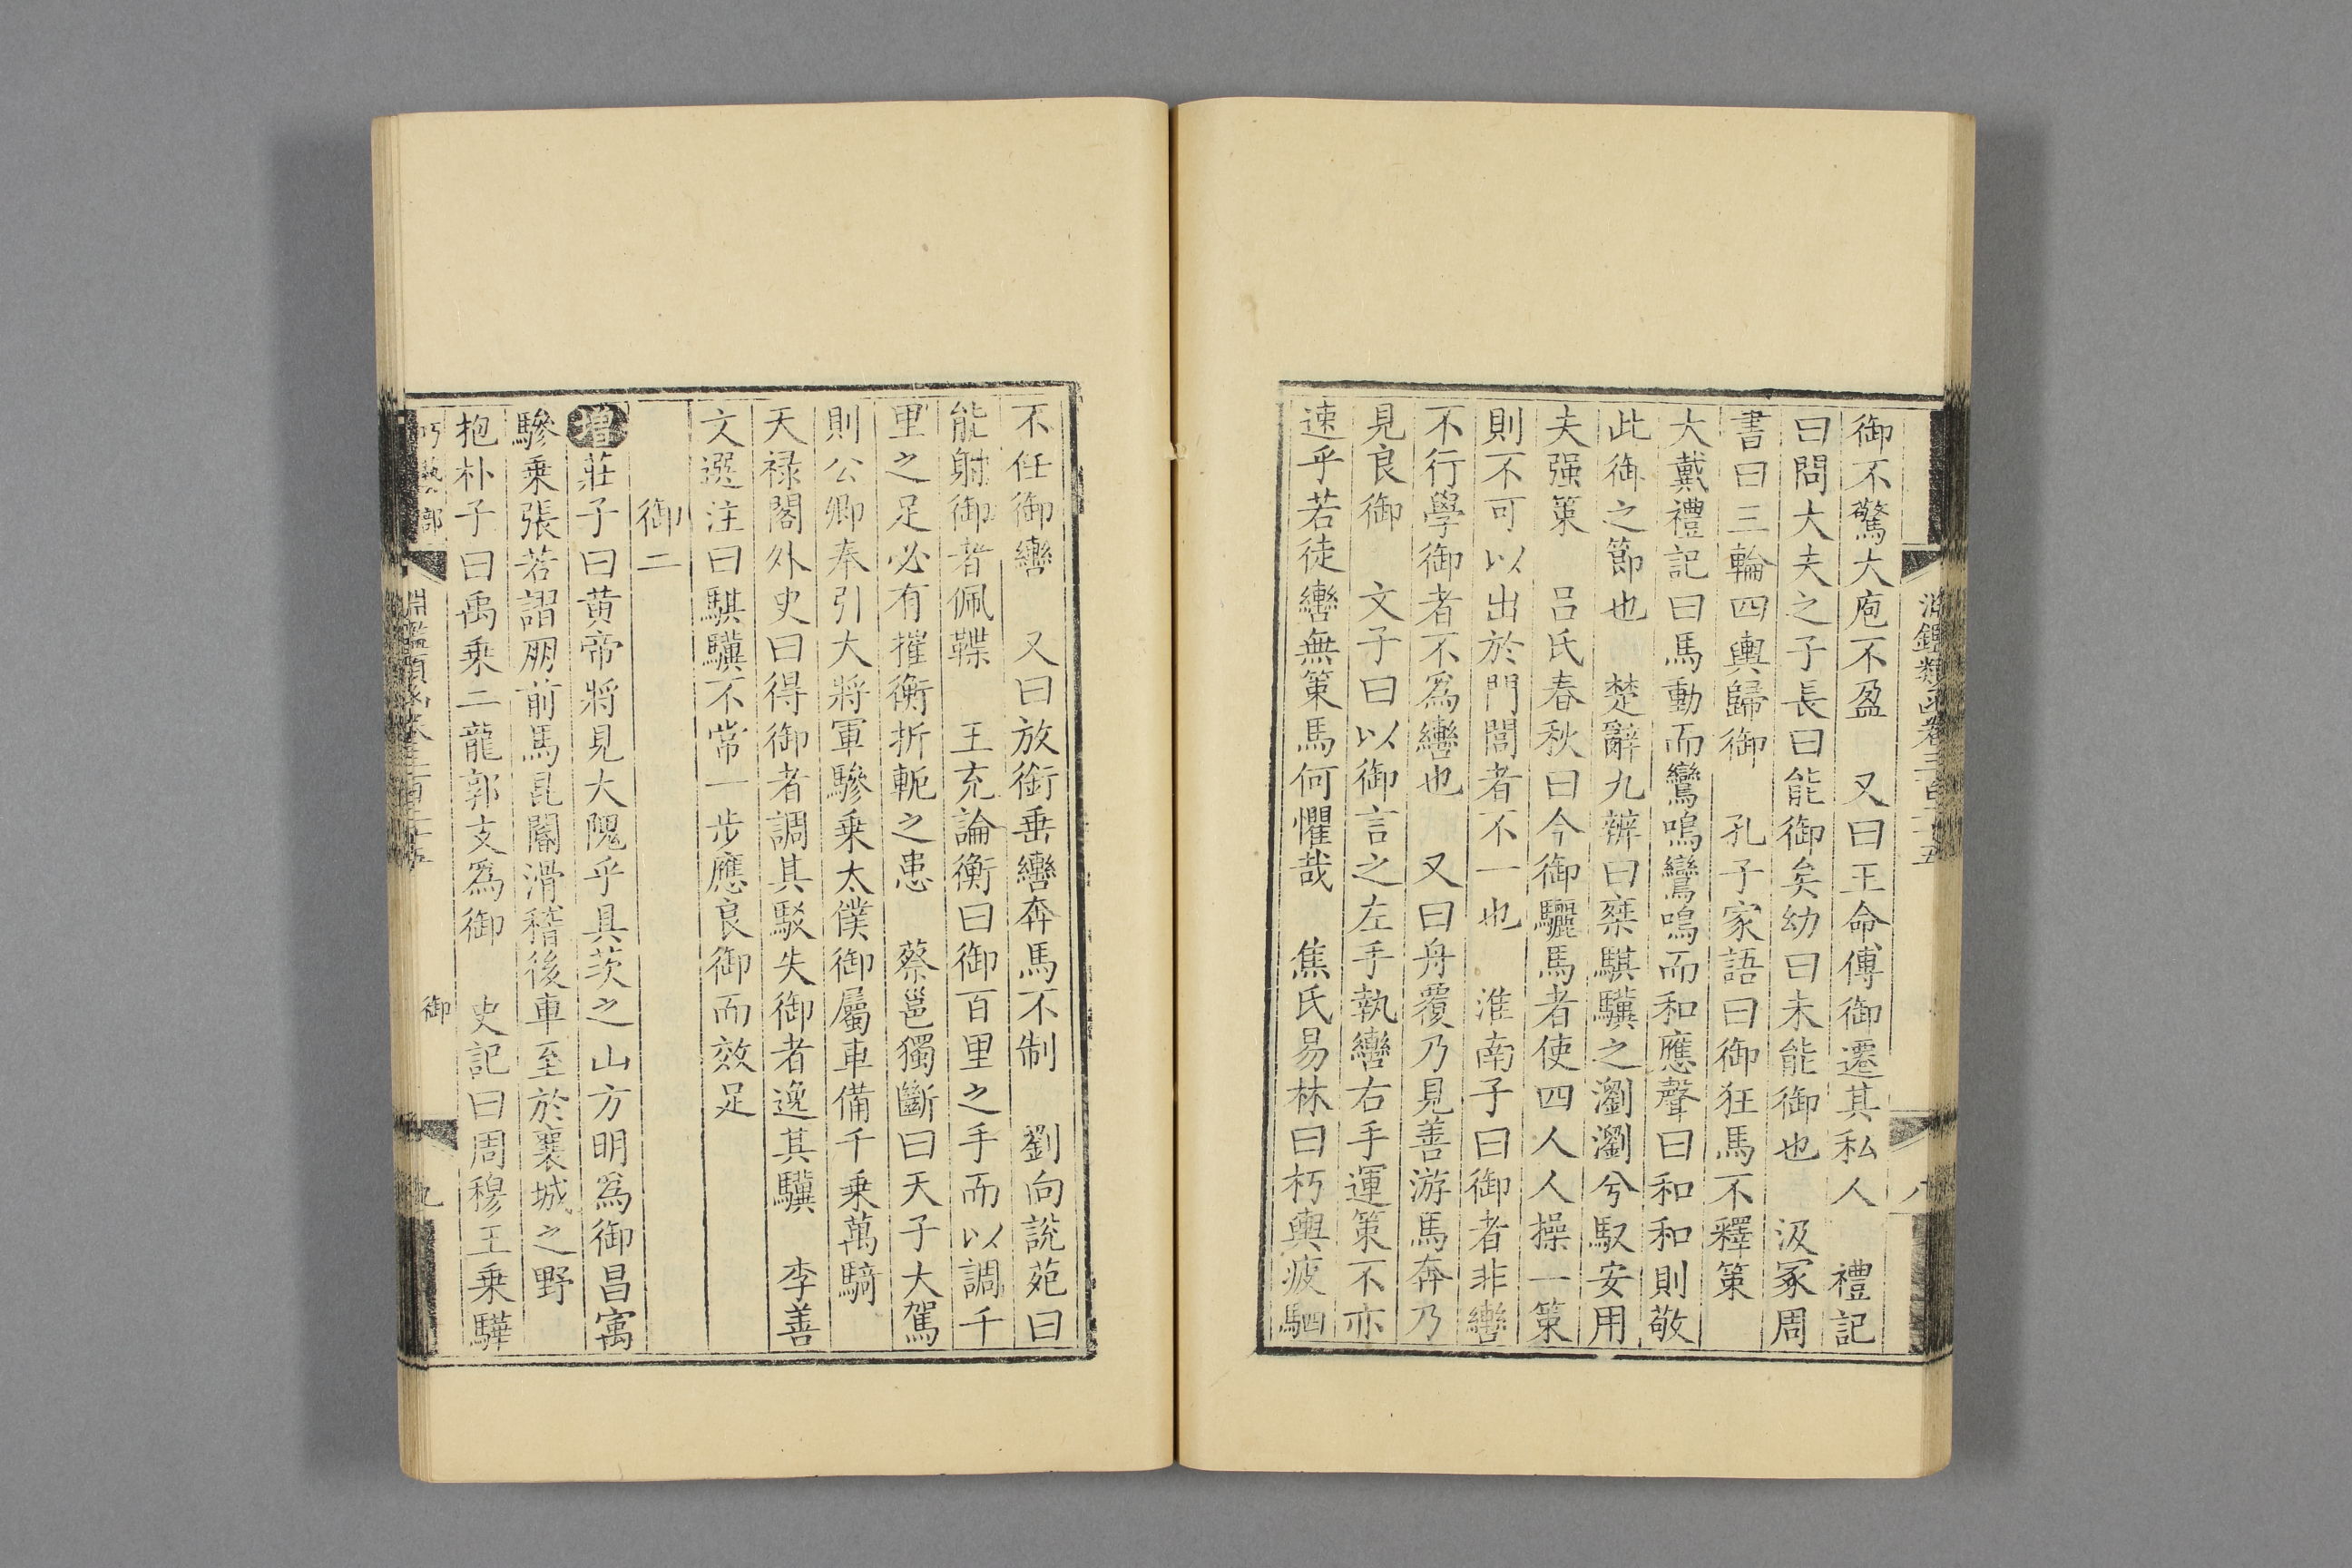 御不驚大庖不盈　又曰王命傅御遷其私人　禮記
曰問大夫之子長曰能御矣幼曰未能御也　汲冢周
書曰三輪四輿歸御　孔子家語曰御狂馬不釋策
大戴禮記曰馬動而鸞鳴鸞鳴而和應聲曰和和則敬
此御之節也　楚辭九辨曰椉騏驥之瀏瀏兮馭安用
夫强策　呂氏春秋曰今御驪馬者使四人人操一策
則不可以出於門閭者不一也　淮南子曰御者非轡
不行學御者不爲轡也　又曰舟覆乃見善游馬奔乃
見良御　文子曰以御言之左手執轡右手運策不亦
速乎若徒轡無策馬何懼哉　焦氏易林曰朽輿疲駟
不任御轡　又曰放銜垂轡奔馬不制　劉向說苑曰
能射御者佩韘　王充論衡曰御百里之手而以調千
里之足必有摧衡折軛之患　蔡邕獨斷曰天子大駕
則公卿奉引大將軍驂乗太僕御屬車備千乗萬騎
天禄閣外史曰得御者調其駁失御者逸其驥　李善
文選注曰騏驥不常一步應良御而效足
御二
增莊子曰黄帝將見大隗乎具茨之山方明爲御昌㝢
驂乗張若謵朋前馬昆閽滑稽後車至於襄城之野
抱朴子曰禹乗二龍郭支爲御　史記曰周穆王乗驊
淵鑑類函卷三百二十五
御
九